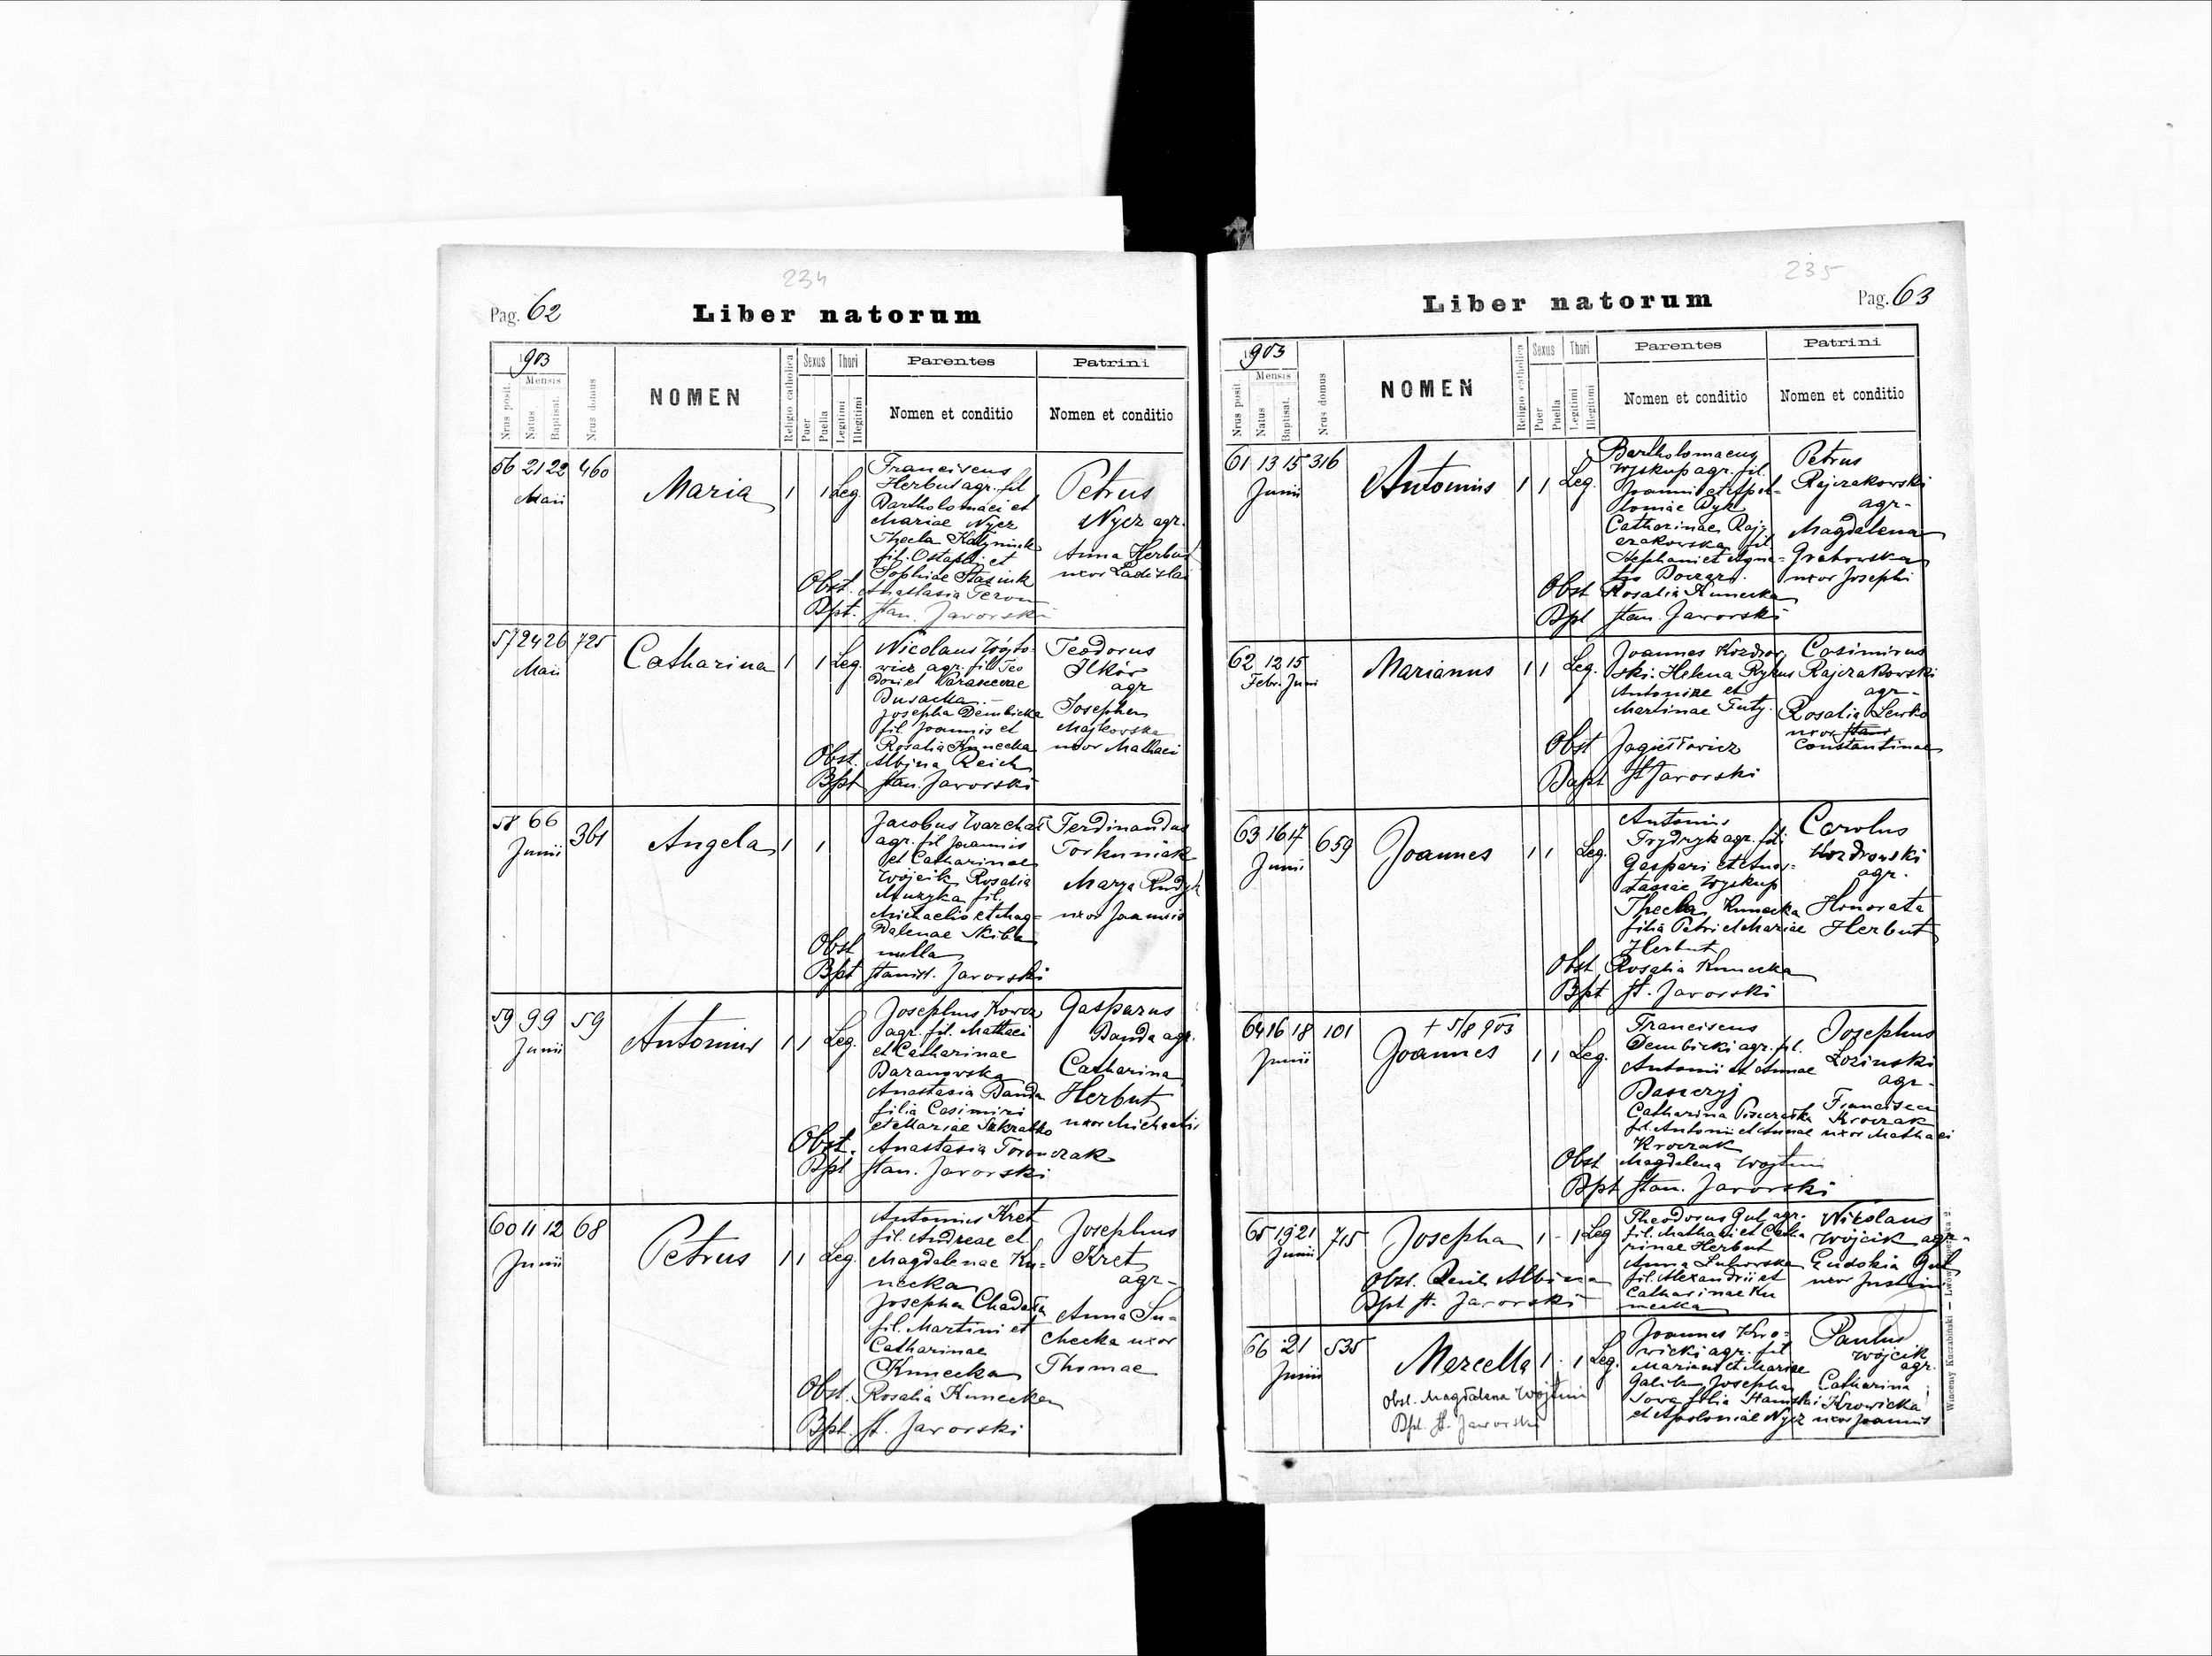 234
Pag. 62
Liber natorum
1903
Mensis
Nrus posit.
Natus
Baptisat.
Nrus domus
NOMEN
Religio catholica
Sexus
Puer
Puella
Thori
Legitimi
Illegitimi
Parentes
Nomen et conditio
Patrini
Nomen et conditio
56 21 22 460
Maii
Maria
1 1 Leg.
Franciscus
Herbut agr. fil
Bartholomaei et
Mariae Nycz
Thecla
fil. Ostaphi et
Sophiae Stasiuk
Obst. Anastasia
Bpt. Stan. Jaworski
Petrus
Nycz agr.
Anna Herbut
uxor Ladislai
57 24 26 725
Maii
Catharina
1 1 Leg.
Nicolaus Wójto-
wicz agr. fil Teo
dori et
Josepha Dembicka
fil. Joannis et
Rosalia Kunecka
Obst. Albina Reich
Bpt Stan. Jaworski
Teodorus
Ilków
agr
Josepha
Majkowska
uxor Mathaei
58 6 6 361
Junii
Angela
1 1
Jacobus Warchał
agr. fil Joannis
et Catharinae
Wójcik Rosalia
Muzyka fil.
Michaelis et Mag-
dalenae Skiba
Obst nulla
Bpt Stanisl. Jaworski
Ferdinandus
Torkuniak
Marya Rudyk
uxor Joannis
59 9 9 59
Junii
Antonius
1 1 Leg.
Josephus
agr. fil. Mathaei
et Catharinae
Baranowska
Anastasia Banda
filia Casimiri
et Mariae
Obst. Anastasia Toronczak
Bpt Stan. Jaworski
Gasparus
Banda agr.
Catharina
Herbut
uxor Michaelis
60 11 12 68
Junii
Petrus
1 1 Leg.
Antonius Kret
fil. Andreae et
Magdalenae Ku-
necka
Josepha
fil. Martini et
Catharinae
Kunecka
Obst. Rosalia Kunecka
Bpt. St. Jaworski
Josephus
Kret
agr-
Anna Su-
checka uxor
Thomae
235
Liber natorum
Pag. 63
1903
Mensis
Nrus posit.
Natus
Baptisat.
Nrus domus
NOMEN
Religio catholica
Sexus
Puer
Puella
Thori
Legitimi
Illegitimi
Parentes
Nomen et conditio
Patrini
Nomen et conditio
61 13 15 316
Junii
Antonius
1 1 Leg.
Bartholomaeus
Wyskup agr. fil.
Joannis et Apol-
loniae Dyk
Catharinae Rajz
czakowska fil
Stephani et Agne-
tis
Obst Rosalia Kunecka
Bpt Stan. Jaworski
Petrus
Rajczakowski
agr-
Magdalena
Grabowska
uxor Josephi
62 12 15
Febr. Juni
Marianus
1 1 Leg.
Joannes Kozdrow
ski. Helena
Antoniae et
Martinae
Obst Jagiełłowicz
Bapt St Jaworski
Casimirus
Rajczakowski
agr-
Rosalia Lewko
uxor
Constantinae
63 16 17 659
Junii
Joannes
1 1 Leg.
Antonius
Frydryk agr. fil.
Gaspari et Anas-
tasiae Wyskup
Thecla Kunecka
filia Petri et Mariae
Herbut
Obst Rosalia Kunecka
Bpt St. Jaworski
Carolus
Kozdrowski
agr.
Honorata
Herbut
64 16 18 101
Junii
+ 5/8 903
Joannes
1 1 Leg.
Franciscus
Dembicki agr. fil.
Antonii et Annae
Catharina
fil. Antonii et Annae
Kroczak
Obst Magdalena
Bpt Stan. Jaworski
Josephus
Łoziński
agr-
Francisca
Kroczak
uxor Mathaei
65 19 21 715
Junii
Josepha
1 - 1 Leg
Obst. Reich Albina
Bpt St. Jaworski
Theodorus Gul agr-
fil. Mathaei et Catha
rinae Herbut
Anna
fil. Alexandrii et
Catharinae Ku
necka
Nikolaus
Wójcik agr-
Eudokia Gul
uxor Justini
66 21 535
Junii
Marcella
1 - 1 Leg.
Obst. Magdalena
Bpt. St. Jaworski
Joannes Kro-
wicki agr. fil
Mariani et Mariae
Galik Josepha
Sowa filia Stanislai
et Apoloniae Nycz
Paulus
Wójcik
agr.
Catharina
Krowicka
uxor Joannis